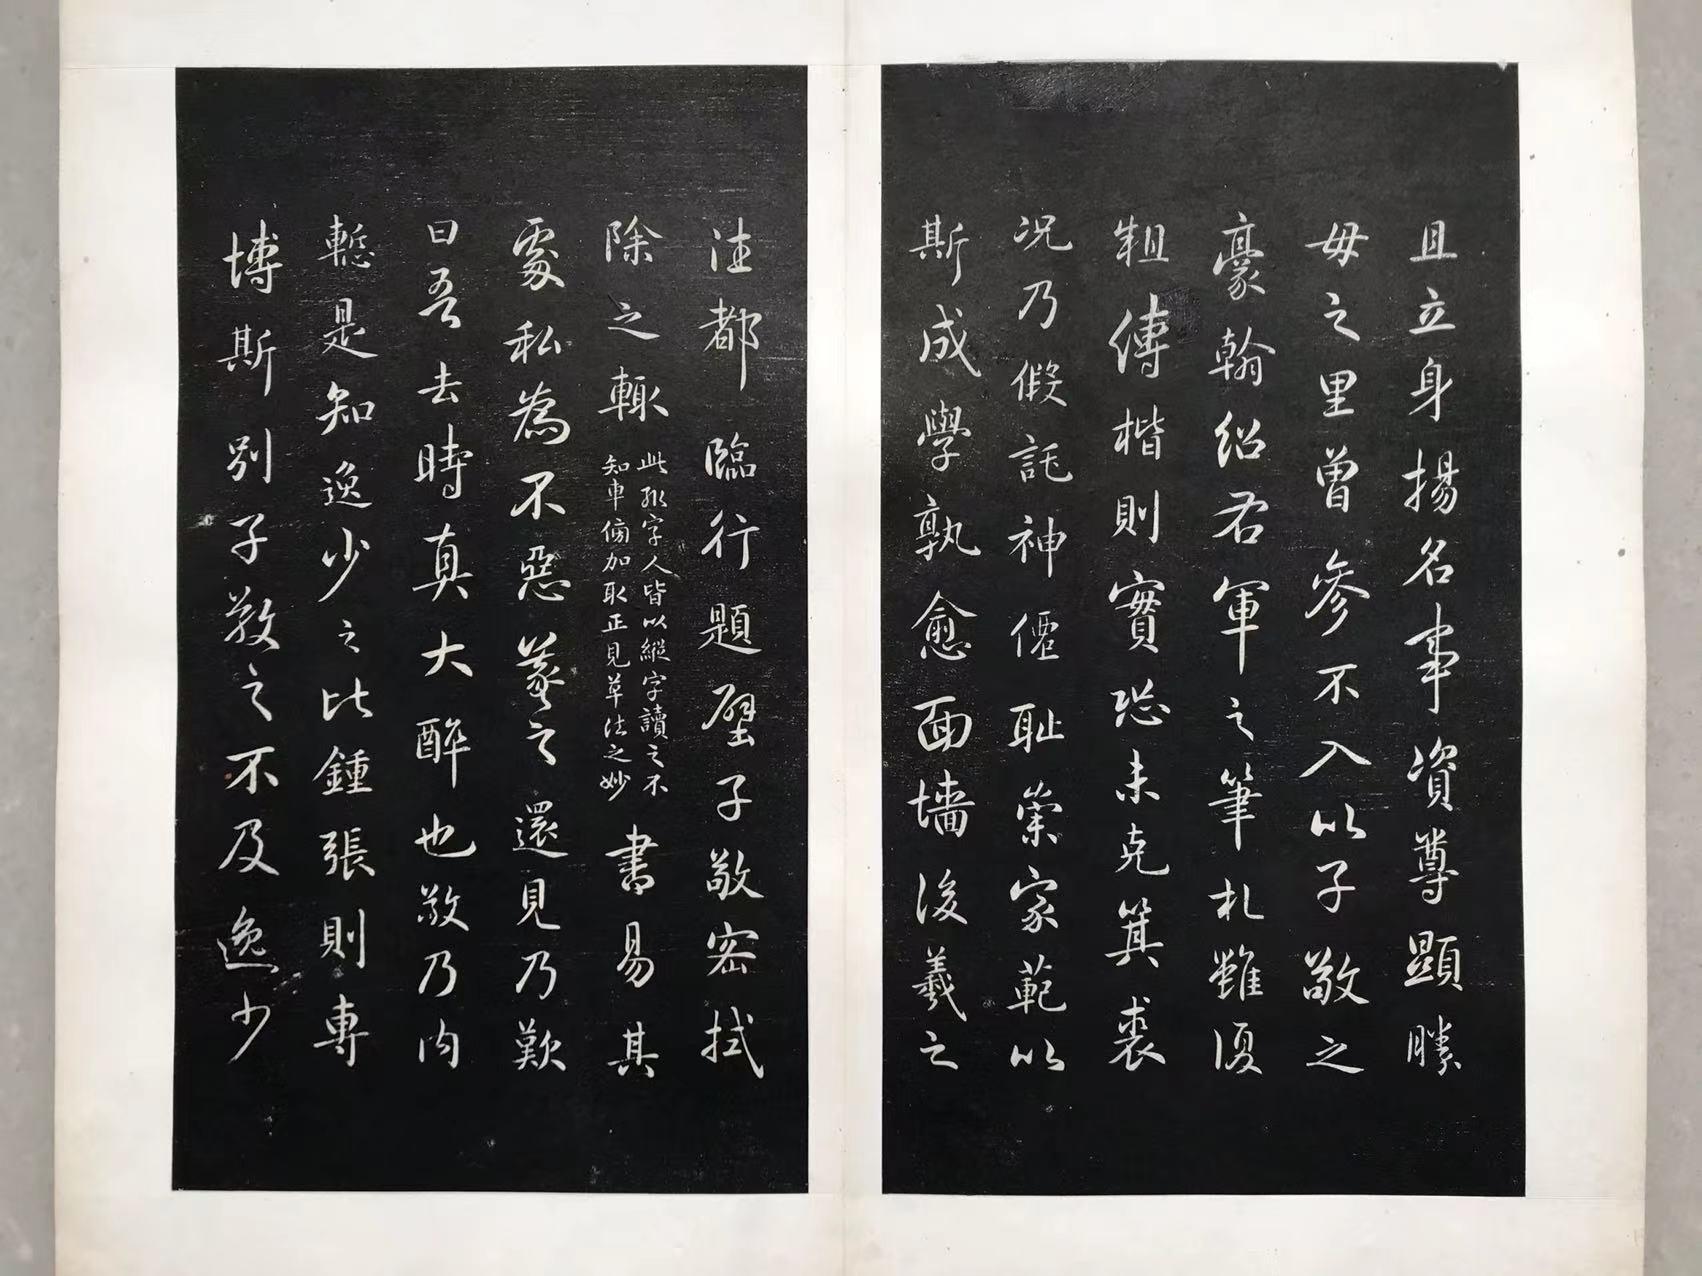 且立身揚名事資尊顯勝
母之里曾參不入以子敬之
豪翰紹右軍之筆札雖復
粗傳楷則實恐未克箕裘
況乃假託神僊恥崇家範以
斯成學孰愈面墻後羲之
往都臨行題壁子敬密拭
除之輒
字人皆以縱字讀之不
知車傍加取正見草法之妙
書易其
處私為不惡羲之還見乃歎
曰吾去時真大醉也敬乃內
慙是知逸少之比鍾張則專
博斯別子敬之不及逸少